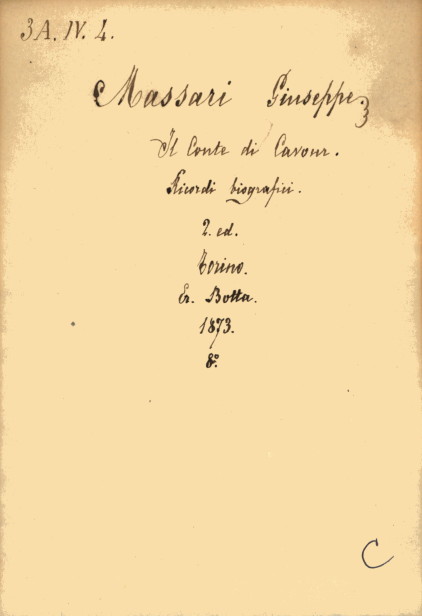 3A. IV. 4.
Massari Giuseppe
Il Conte di Cavour.
Ricordi biografici.
2. ed.
Torino.
Er. Botta.
1873.
8.º
C